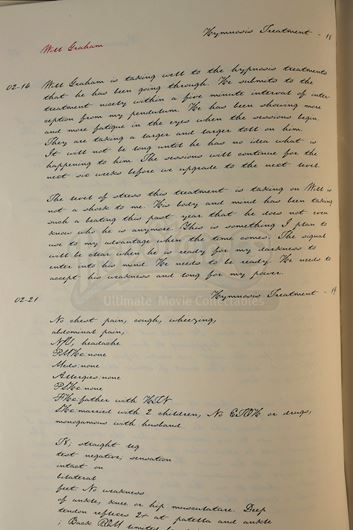 Hymnosis Treatment - 11
Will Graham
02-14 Will Graham is taking well to the hypnosis treatments
that he has been going through. He submits to the
treatment nicely within a five minute interval of inter
ception from my pendulum. He has been showing more
and more fatigue in the eyes when the sessions begin
They are taking a larger and larger toll on him.
It will not be long until he has no idea what is
happening to him. The sessions will continue for the
next six weeks before we upgrade to the next level
The level of stress this treatment is taking on Will is
not a shock to me. His body and mind has been taking
such a beating this past year that he does not even
know who he is anymore. This is something I plan to
use to my advantage when the time comes. The signal
will be clear when he is ready for my darkness to
enter into his mind. He needs to be ready. He needs to
accept his weakness and long for my power.
Ultimate Movie Collectables
02-21 Hymnosis Treatment -
No chest pain, cough, wheezing,
abdominal pain,
headache
none
Meds: none
Allergies: none
none
father with HTN
married with 2 children, No ETOH or drugs,
monogamous with husband
straight leg
test negative; sensation
intact on
bilateral
feet No weakness
of ankle, knee or hip musculature. Deep
tendon reflexes 2+ at patella and ankle
; Back ROM limited